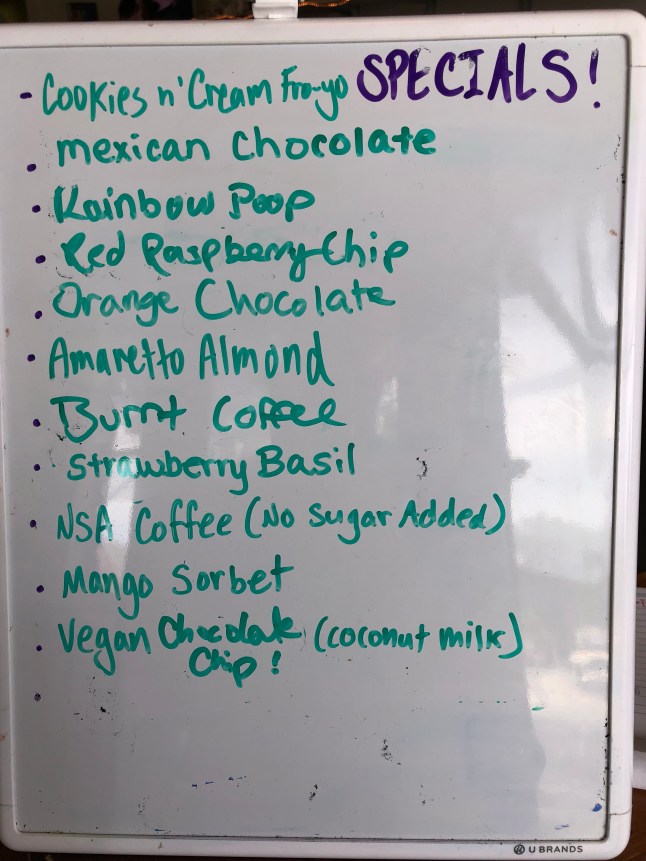 - Cookies n' Cream Fro-yo SPECIALS!
• mexican Chocolate
• Rainbow Poop
• Red Raspberry Chip
• Orange Chocolate
• Amaretto Almond
• Burnt Coffee
• Strawberry Basil
• NSA Coffee (No Sugar Added)
• Mango Sorbet
• Vegan Chocolate (coconut milk)
Chip!
•
U BRANDS